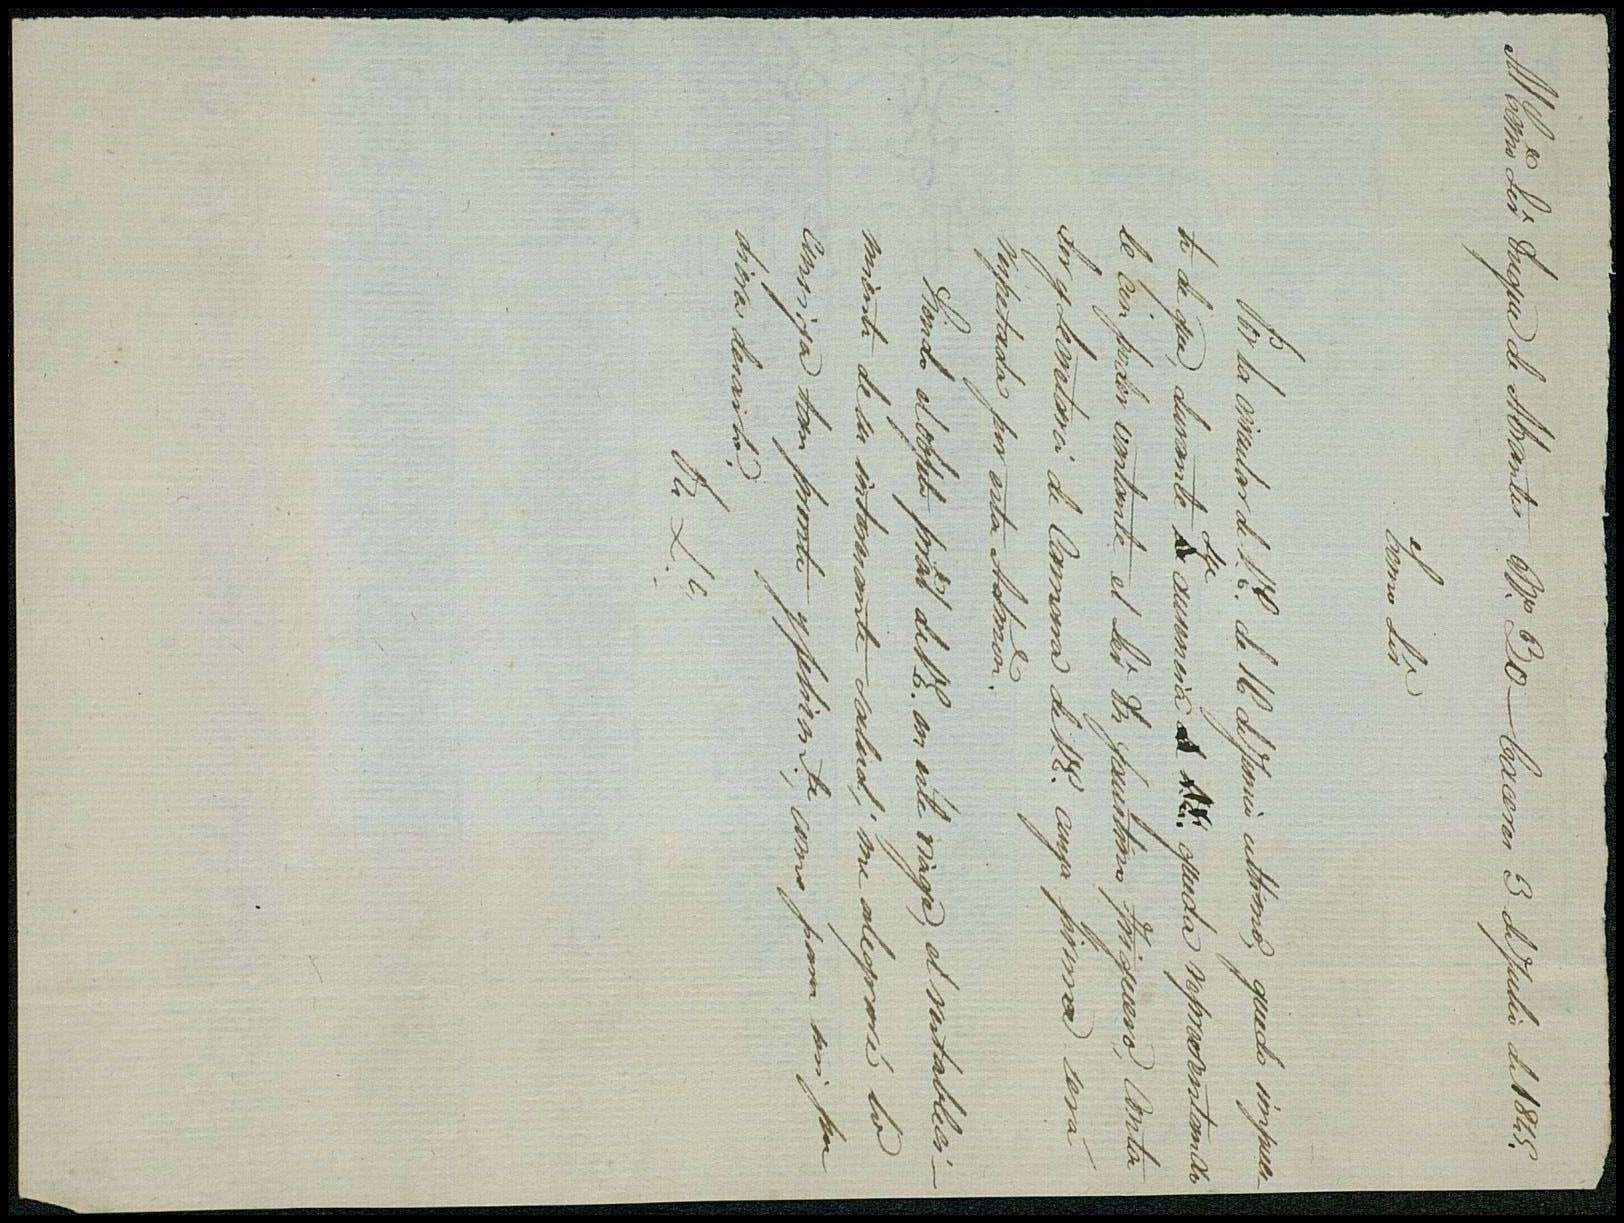 Al Exmo Sor Duque de Abrantes Nº 30 — Caceres 3 de Julio de 1845.
Exmo Sor
Por la circular de V.E. de 16 de Junio ultimo, quedo impues-
to de que, durante su ausencia queda representando
le con poder vastante el Sor Dn Faustino Trigueros, Conta
dor y Secretario de Camara de V.E. cuya firma será
respetada por esta Admon.
Siendo el objeto pral de V.E. en este viage, el restableci-
miento de su interesante salud, me alegraré lo
consiga tan pronto y felizmte, como para mi pro
pio deseara.